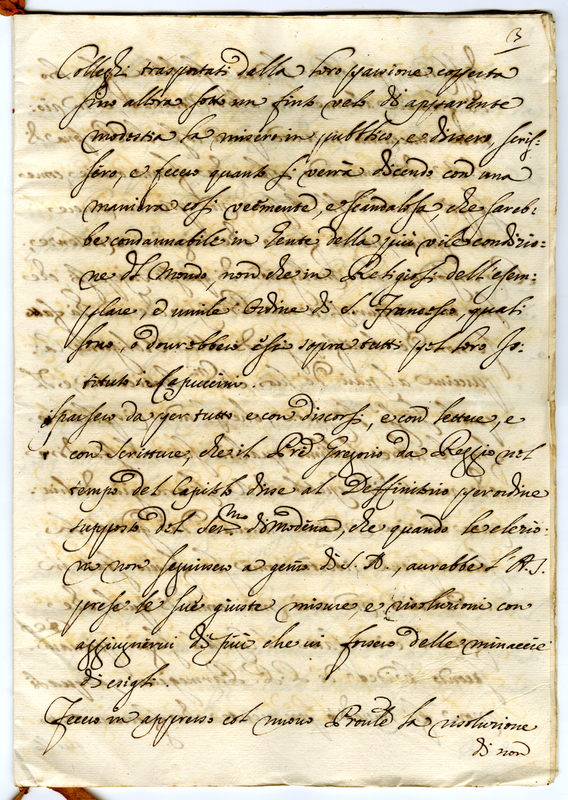 3
Colleghi trasportati dalla loro passione coperta
sino allora sotto un finto velo di apparente
modestia la misero in pubblico, e dissero, scris-
sero, e fecero quanto si verrà dicendo con una
maniera così veemente, e scandalosa, che sareb-
be condannabile in Gente della più vile condizio-
ne del Mondo, non che in Religiosi dell'esem-
plare, e umile Ordine di S. Francesco, quali
sono, e dourebbero essi sopra tutti pel loro Is-
tituto i Capuccini.
Sparsero da per tutto e con discorsi, e con lettere, e
con Scritture, che il Prẽ Gregorio da Reggio nel
tempo del Capitolo disse al Diffinitorio per ordine
supposto del Ser.mo di Modena, che quando le elezio-
ni non seguissero a genio di S. A., aurebbe l'A. S.
prese le sue giuste misure, e risoluzioni con
aggiugnerui di più che ui fossero delle minaccie
di esigli.
Fecero in appresso col nuovo Proule la risoluzione
di non